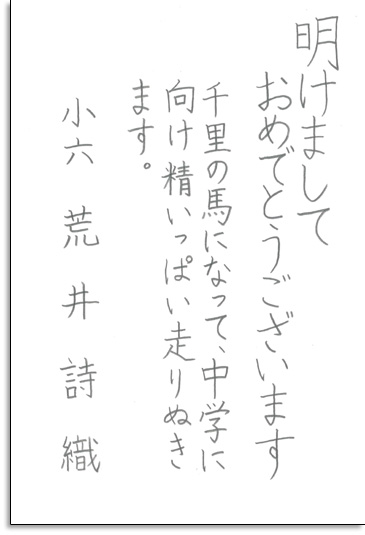 明けまして
おめでとうございます
千里の馬になって、中学に
向け精いっぱい走りぬき
ます。
小六 荒井詩織